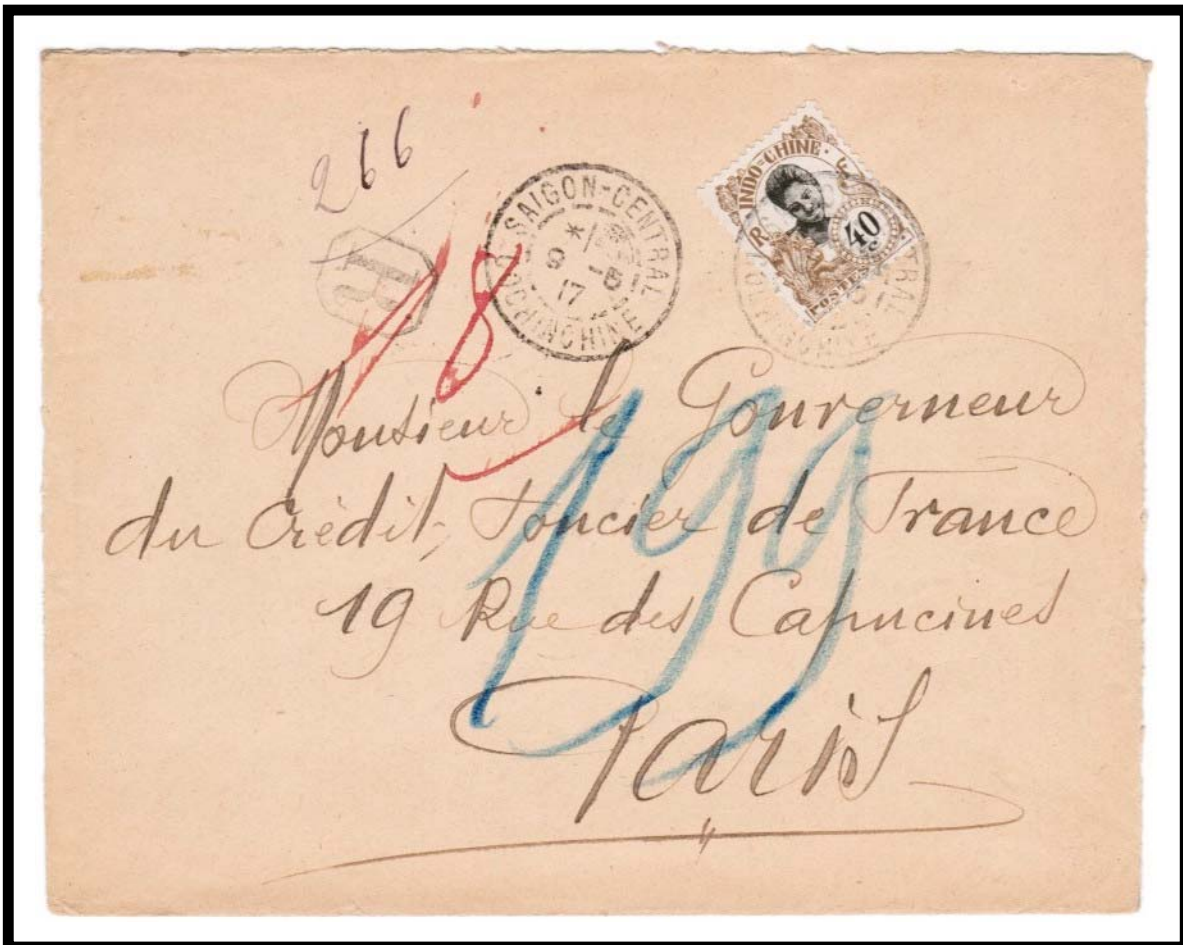 266
R
18
SAIGON-CENTRAL
* 9 -5
17
COCHINCHINE
INDO=CHINE · R F
40
c.
POSTES
Monsieur le Gouverneur
du Crédit Foncier de France
19 Rue des Capucines
Paris
199